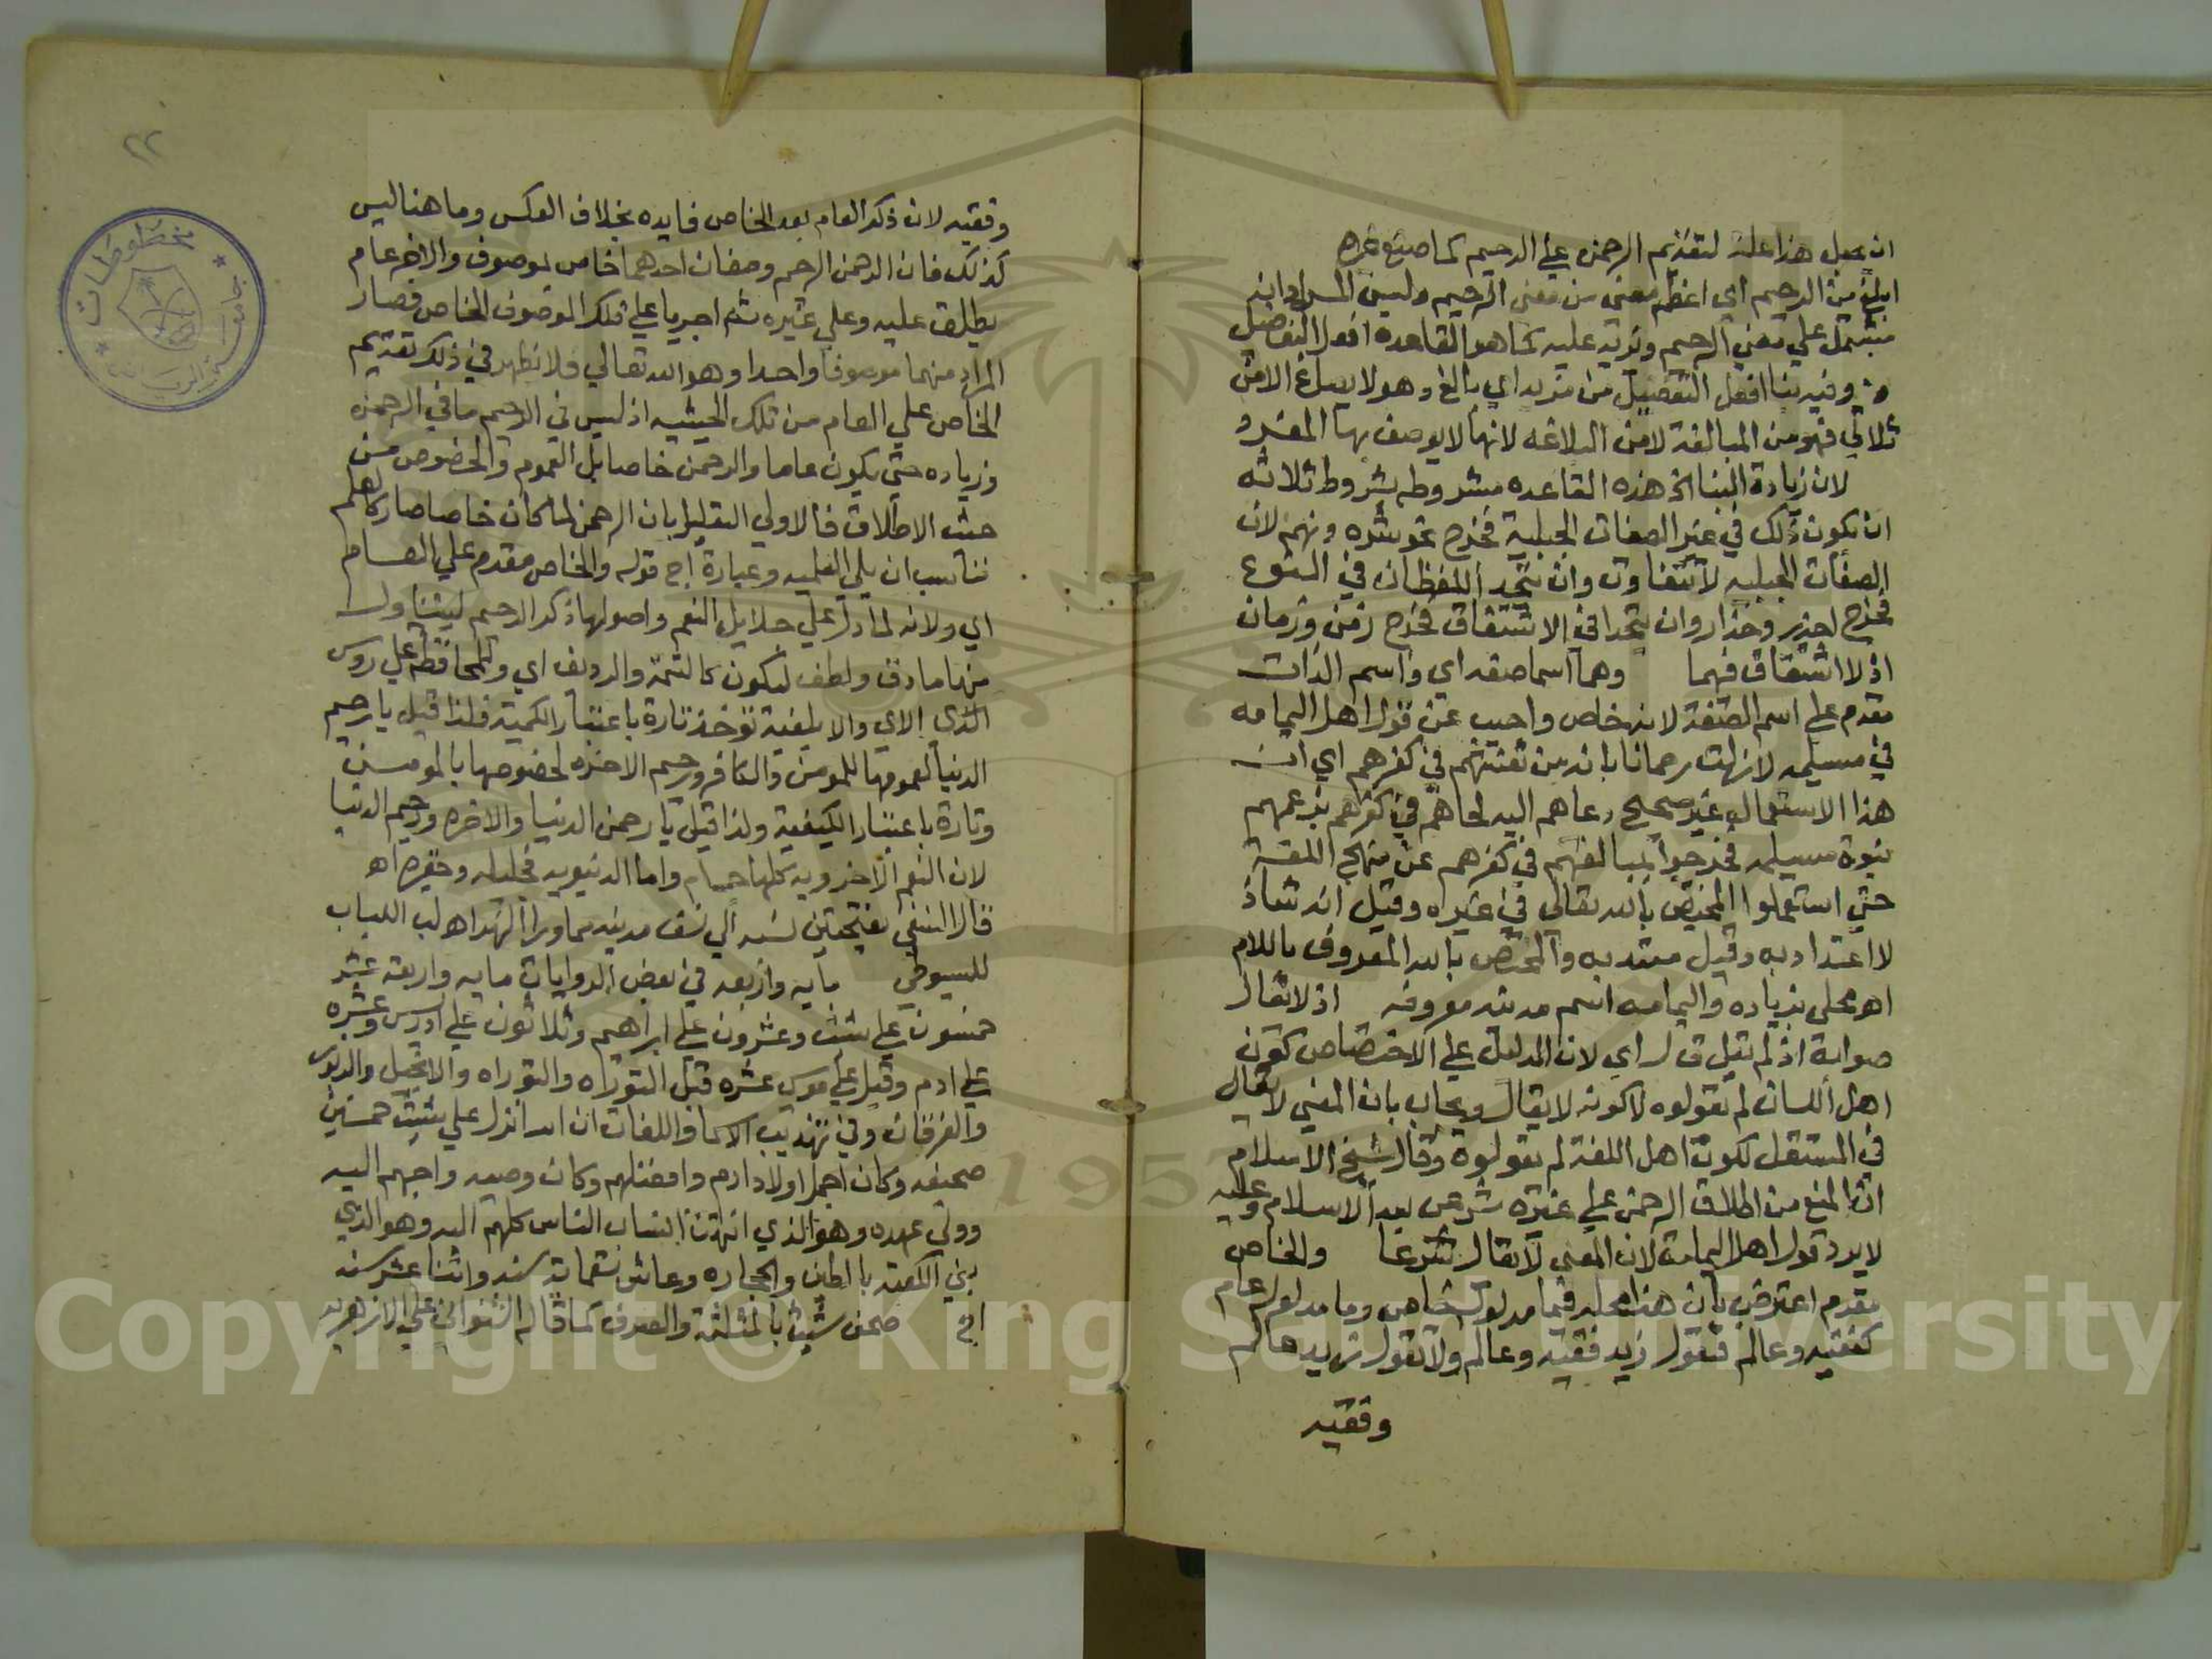 ان يجعل هذا علة لتقديم الرحمن علي الرحيم كما صنع غيره
ابلغ من الرحيم اي اعظم معني من معني الرحيم وليس المراد انه
مشتمل علي معني الرحيم وزيد عليه كما هو القاعدة افعل التفضيل
وفيه بنا افعل التفضيل من مزيد اي بالغ وهو لا يصاغ الا من
ثلاثي فهو من المبالغة لا من البلاغه لانها لا يوصف بها المفرد
لان زيادة البنا الخ هذه القاعده مشروطه بشروط ثلاثه
ان تكون ذلك في غير الصفات الجبلية فخرج نحو شره ونهم لان
الصفات الجبليه لا تتفاوت وان يتحد اللفظان في النوع
فخرج حذر وحذار وان يتحدا في الاشتقاق فخرج زمن وزمان
اذ لا اشتقاق فيهما وهما اسما صفه اي واسم الذات
مقدم علي اسم الصفة لانه خاص واجيب عن قول اهل اليمامه
في مسيلمه لا زلت رحمانا بانه من تعنتهم في كفرهم اي ان
هذا الاستعمال غير صحيح دعاهم اليه لجاهم في كفرهم بزعمهم
نبوة مسيلمه فخرجوا بمبالغتهم في كفرهم عن منهج اللغة
حتي استعملوا المختص بالله تعالي في غيره وقيل انه شاذ
لا اعتداد به وقيل معتد به والمختص بالله المعروف باللام
اه محلي بزياده واليمامه اسم مدينه معروفه اذ لا يقال
صوابه اذ لم يقل ق ل اي لان الدليل علي الاختصاص كون
اهل اللسان لم يقولوه لا كونه لا يقال ويجاب بان المعني لا يقال
في المستقبل لكون اهل اللغة لم يقولوه وقال شيخ الاسلام
ان المنع من اطلاق الرحمن علي غيره شرعي بعد الاسلام وعليه
لا يرد قول اهل اليمامة لان المعني لا يقال شرعا والخاص
مقدم اعترض بان هذا محله فيما مدلوله خاص وما مدلوله عام
كفقيه وعالم فتقول زيد فقيه وعالم ولا تقول زيد عالم
وفقيه
٢٢
مخطوطات
وفقيه لان ذكر العام بعد الخاص فايده بخلاف العكس وما هنا ليس
كذلك فان الرحمن الرحيم وصفان احدهما خاص لموصوف والاخر عام
يطلق عليه وعلي غيره ثم اجريا علي ذلك الموصوف الخاص فصار
المراد منهما موصوفا واحدا وهو الله تعالي فلا يظهر في ذلك تقديم
الخاص علي العام من تلك الحيثيه اذ ليس في الرحيم ما في الرحمن
وزياده حتي يكون عاما والرحمن خاصا بل العموم والخصوص من
حيث الاطلاق فالاولي التعليل بان الرحمن لما كان خاصا صار كالعلم
فناسب ان يلي العلميه وعبارة اج قوله والخاص مقدم علي العام
اي ولانه لما دل علي جلايل النعم واصولها ذكر الرحيم ليتناول
منها ما دق ولطف ليكون كالتتمة والرديف اي وللمحافظه علي روس
الاي والابلغية توخذ تارة باعتبار الكمية فلذا قيل يا رحيم
الدنيا لعمومها للمومن والكافر ورحيم الاخره لخصوصها بالمومنين
وتارة باعتبار الكيفية ولذا قيل يا رحمن الدنيا والاخره ورحيم الدنيا
لان النعم الاخرويه كلها جسام واما الدنيويه فجليله وحقيره اه
قال النسفي بفتحتين نسبه الي نسف مدينه بما ورا النهر اه لب اللباب
للسيوطي مايه واربعه في بعض الروايات مايه واربعة عشر
خمسون علي شيث وعشرون علي ابراهيم وثلاثون علي ادريس وعشره
علي ادم وقيل علي موسي عشره قبل التوراه والتوراه والانجيل والزبور
والفرقان وفي تهذيب الاسما واللغات ان الله انزل علي شيث خمسين
صحيفه وكان اجمل اولاد ادم وافضلهم وكان وصيه واحبهم اليه
وولي عهده وهو الذي انتهت انساب الناس كلهم اليه وهو الذي
بني الكعبه بالطين والحجاره وعاش تسعماية سنه واثنا عشر سنه
اج صحف شيث بالمثلثة والصرف كما قاله الشنواني علي الازهريه